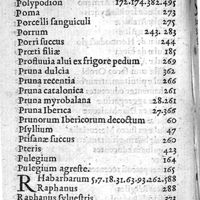 Polypodion 172.174.382.495
Poma 273
Porcelli sanguiculi 275
Porrum 243. 283
Porri succus 244
Præcti filiæ 185
Profluuia alui ex frigore pedum 269
Pruna dulcia 260
Pruna recentia 266
Pruna catalonica 261
Pruna myrobalana 28.261
Pruna Iberica 27.365
Prunorum Ibericorum decoctum 60
Psyllium 47
Ptisanæ succus 260
Pteris 423
Pulegium 164
Pulegium agreste. 165
RHabarbarum 5.7.18.31.63.93.262.588
Raphanus 288
Raphanus syluestris